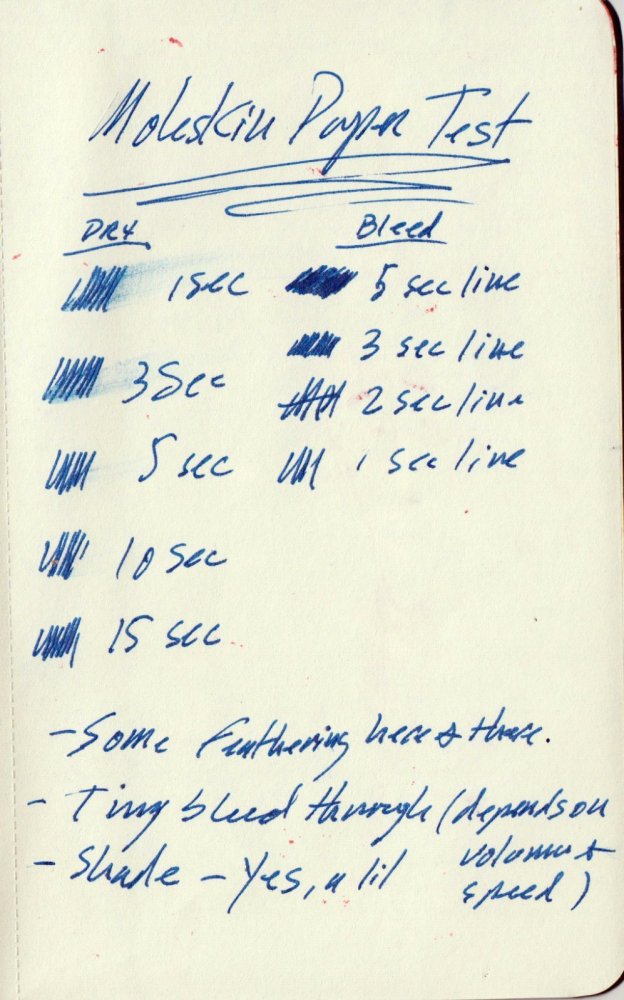 Moleskin Paper Test
DRY
1 sec
3 Sec
5 sec
10 sec
15 sec
Bleed
5 sec line
3 sec line
2 sec line
1 sec line
- Some Feathering here & there.
- Tiny bleed through (depends on
volume +
speed)
- Shade - Yes, a lil